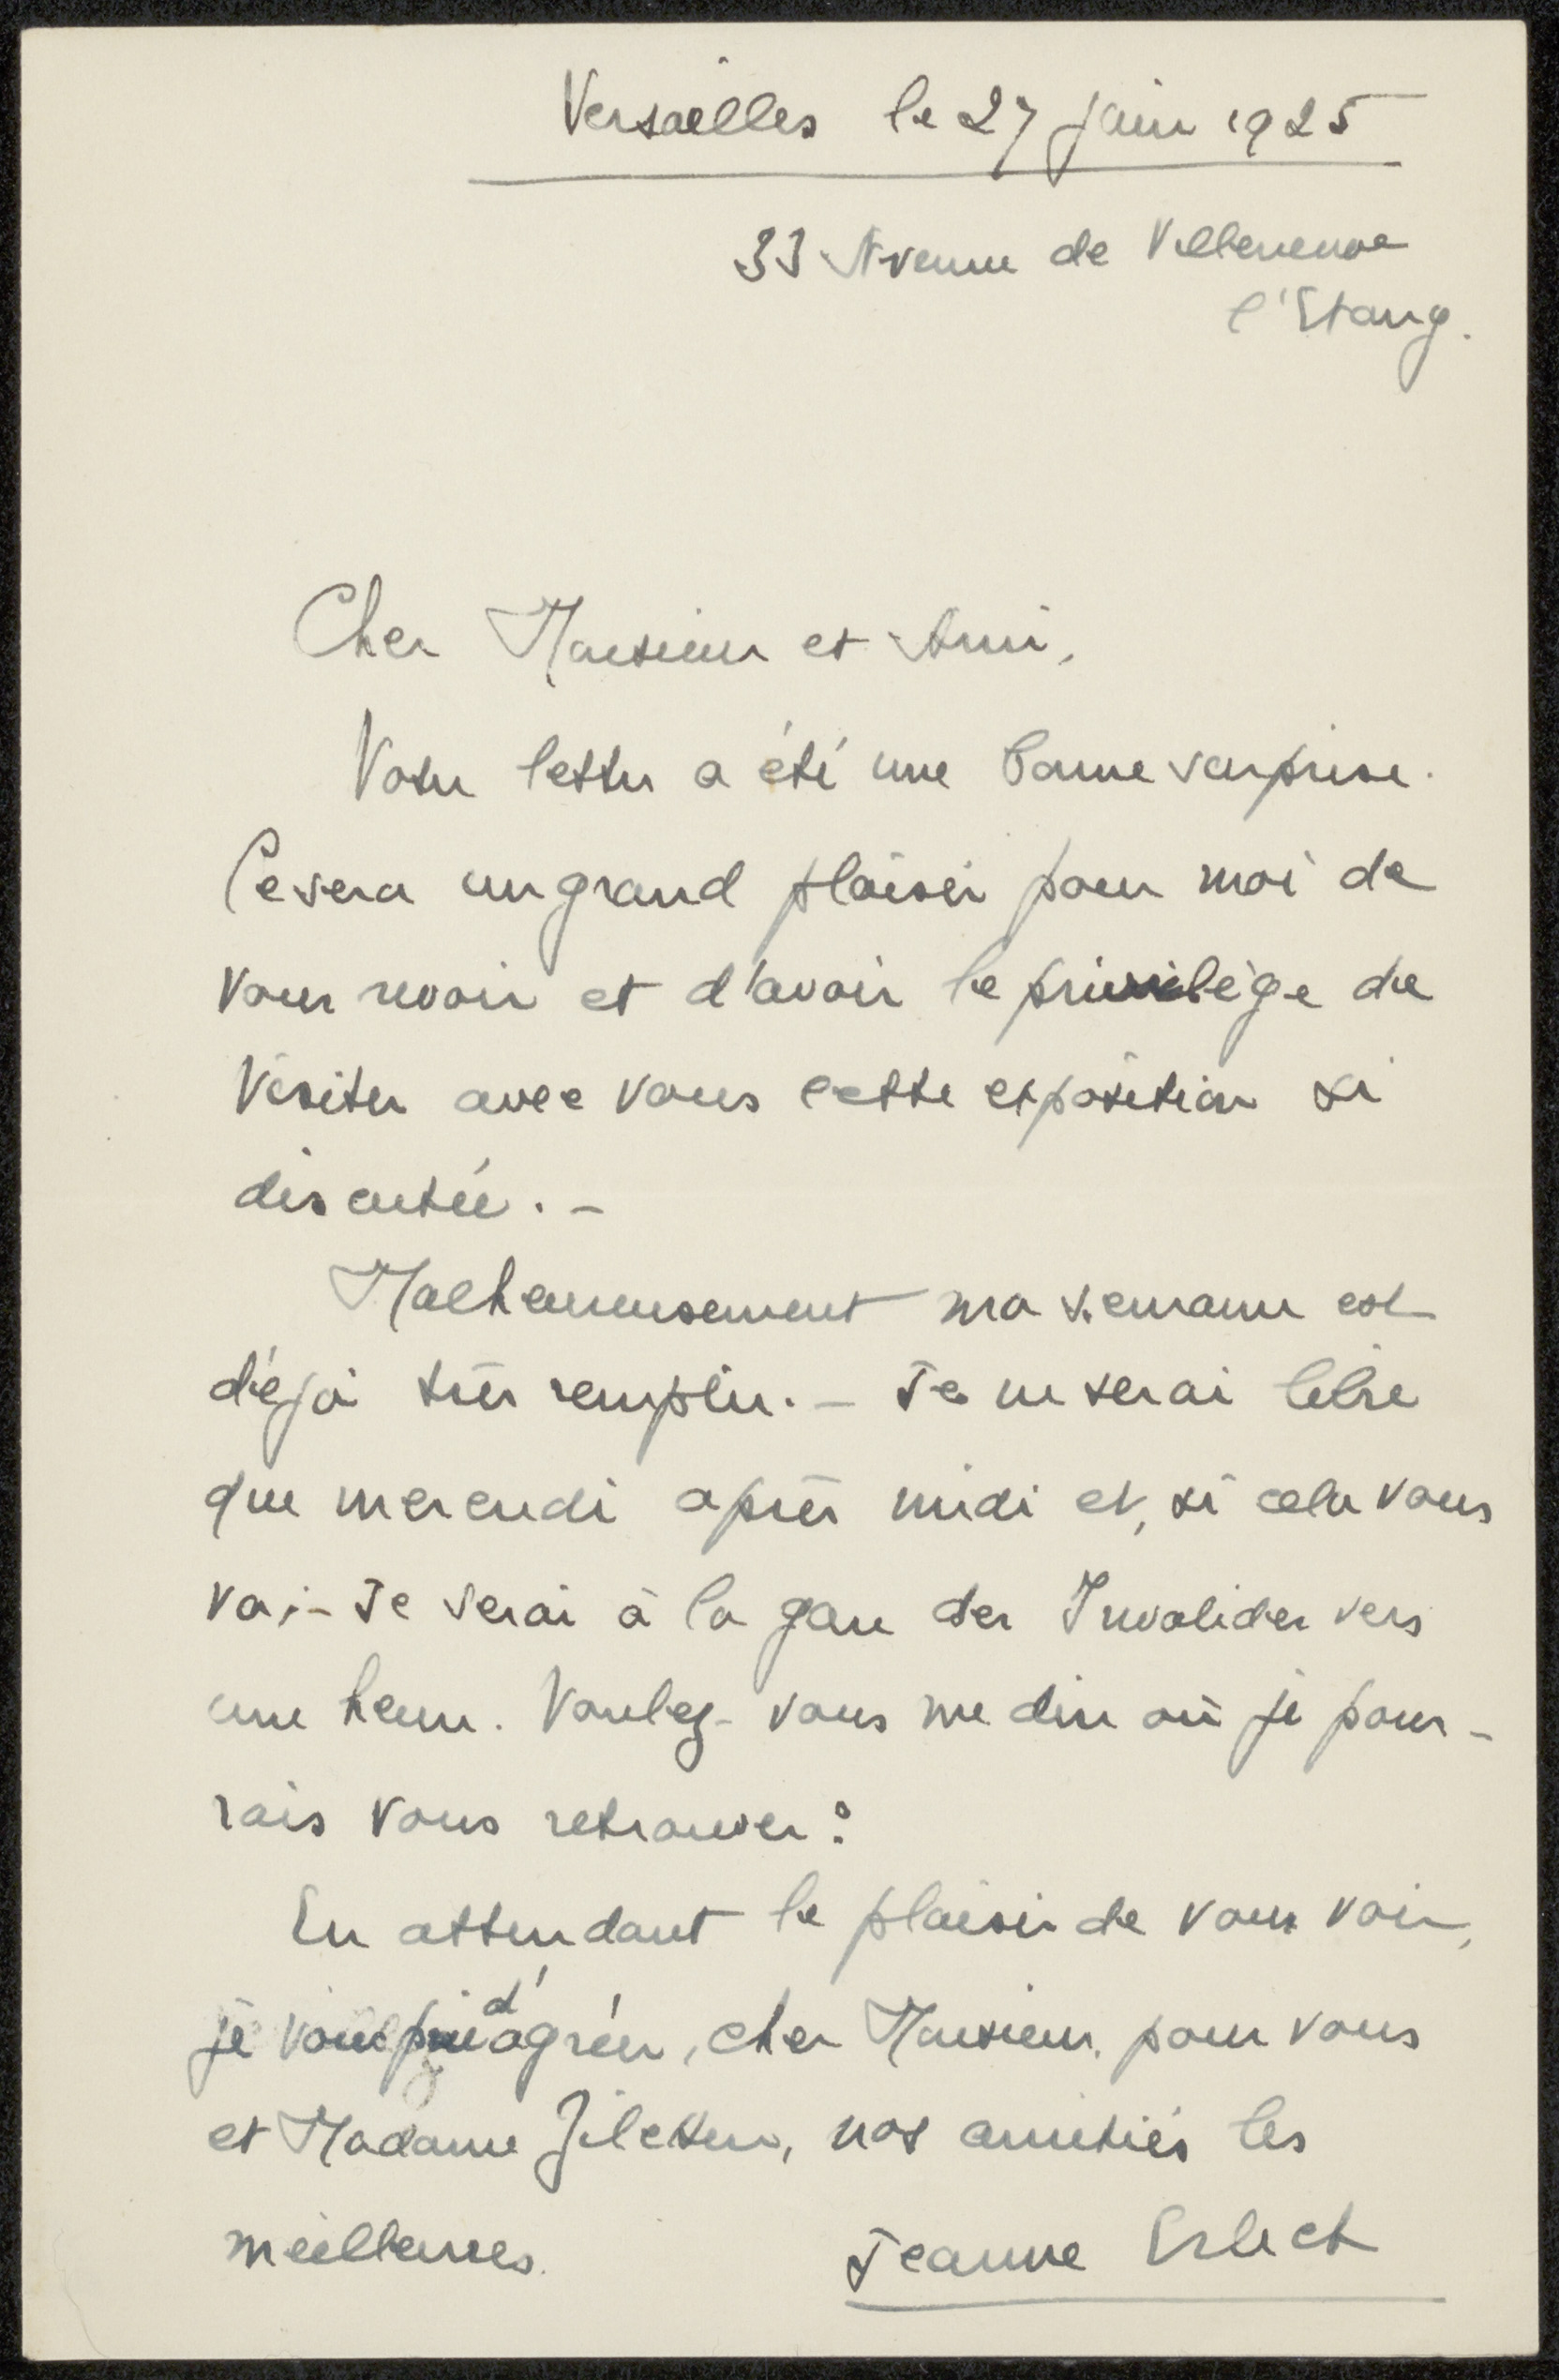 Versailles le 27 juin 1925
33 Avenue de Villeneuve
l'Etang.
Cher Monsieur et Ami,
Votre lettre a été une bonne surprise.
Ce sera un grand plaisir pour moi de
vous revoir et d'avoir le privilège de
visiter avec vous cette exposition si
discutée. -
Malheureusement ma semaine est
déjà très remplie. - Je ne serai libre
que mercredi après midi et, si cela vous
va, - Je serai à la gare des Invalides vers
une heure. Voulez-vous me dire où je pour-
rais vous retrouver?
En attendant le plaisir de vous voir,
je vous prie d'agréer, cher Monsieur, pour vous
et Madame Zilcken, nos amitiés les
meilleures.
Jeanne